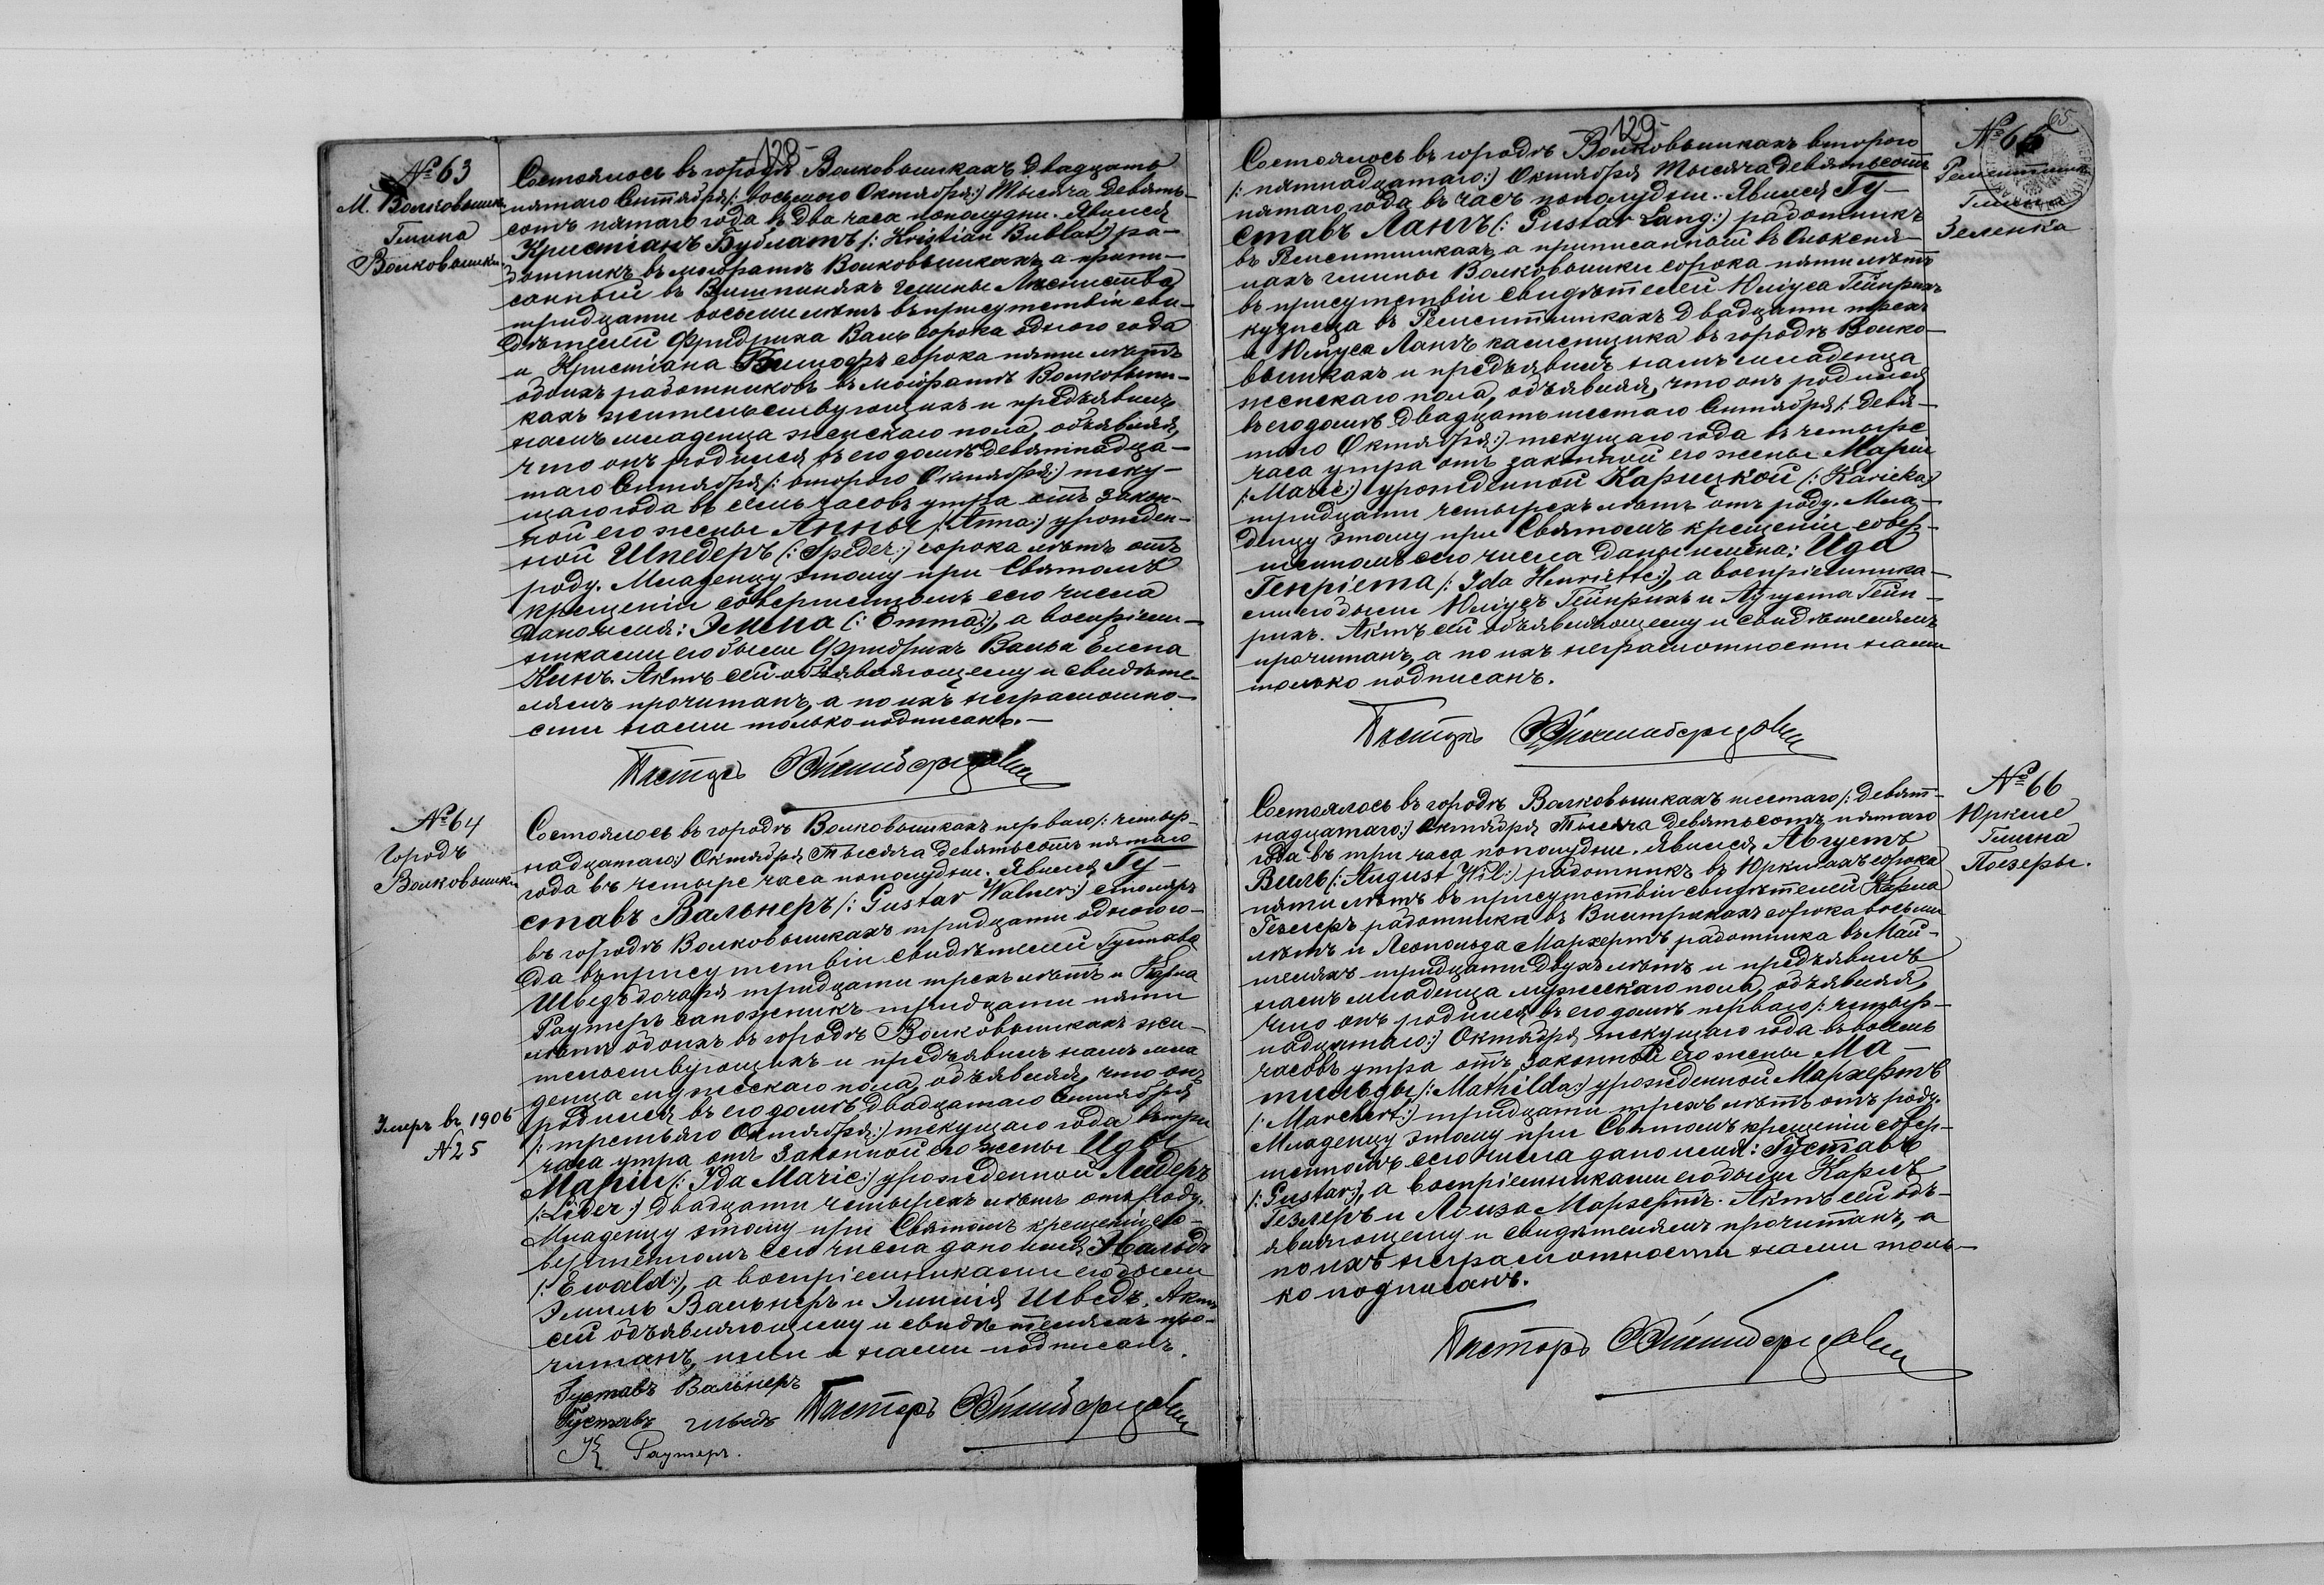 -128-
№ 63
М. Волковышки
Гмина
Волковышки.
Состоялось въ городѣ Волковышкахъ двадцать
пятаго Сентября /: восьмого Октября :/ Тысяча девять-
сотъ пятаго года въ два часа пополудни. Явился
Христіанъ Бублатъ /: Kristian Bublat :/ ра-
ботникъ въ маіоратѣ Волковышкахъ а припи-
санный въ гмины
тридцати восьми лѣтъ въ присутствіи сви-
дѣтелей Фридриха Валь сорока одного года
и Христіана сорока пяти лѣтъ
обоихъ работниковъ въ маіоратѣ Волковыш-
кахъ жительствующихъ и предъявилъ
намъ младенца женскаго пола, объявляя,
что онъ родился въ его домѣ девятнадца-
таго Сентября /: второго Октября :/ теку-
щаго года въ семь часовъ утра отъ закон-
ной его жены Анны /: Anna :/ урожден-
ной Шпедеръ /: Speder :/ сорока лѣтъ отъ
роду. Младенцу этому при Святомъ
крещеніи совершенномъ сего числа
дано имя: Эмма /: Emma :/, а воспріем-
никами его были Фридрихъ Валь и Елена
Кинъ. Актъ сей объявляющему и свидѣте-
лямъ прочитанъ, а по ихъ неграмотно-
сти нами только подписанъ. —
Пасторъ
№ 64
Городъ
Волковышки
Состоялось въ городѣ Волковышкахъ перваго /: четыр-
надцатаго :/ Октября Тысяча девятьсотъ пятаго
года въ четыре часа пополудни. Явился Гу-
ставъ Вальнеръ /: Gustav Walner :/ столяръ
въ городѣ Волковышкахъ тридцати одного го-
да въ присутствіи свидѣтелей Густава
Шведъ бочаря тридцати трехъ лѣтъ и Карла
Раутеръ сапожникъ тридцати пяти
лѣтъ обоихъ въ городѣ Волковышкахъ жи-
тельствующихъ и предъявилъ намъ мла
денца мужескаго пола, объявляя, что онъ
родился въ его домѣ двадцатаго Сентября
/: третьяго Октября :/ текущаго года въ три
часа утра отъ законной его жены Иды
Маріи /: Ida Marie :/ урожденной Лидеръ
/: Lider :/ двадцати четырехъ лѣтъ отъ роду.
Младенцу этому при Святомъ крещеніи со-
вершенномъ сего числа дано имя Эвальдъ
/: Ewald :/, а воспріемниками его были
Эмиль Вальнеръ и Эмилія Шведъ. Актъ
сей объявляющему и свидѣтелямъ про-
читанъ, ими и нами подписанъ.
Умеръ въ 1906
№ 25
Густавъ Вальнеръ
Густавъ Шведъ
К Раутеръ.
Пасторъ
-129-
65.
№ 65
Гмина
Зеленка
Состоялось въ городѣ Волковышкахъ второго
/: пятнадцатаго :/ Октября Тысяча девятьсотъ
пятаго года въ часъ пополудни. Явился Гу-
ставъ Лангъ /: Gustav Lang :/ работникъ
въ а приписанный въ
гмины Волковышки сорока пяти лѣтъ
въ присутствіи свидѣтелей Юліуса Гейнрихъ
кузнеца въ двадцати трехъ
и Юліуса Лангъ каменщика въ городѣ Волко-
вышкахъ и предъявилъ намъ младенца
женскаго пола, объявляя, что онъ родился
въ его домѣ двадцать шестаго Сентября /: девя-
таго Октября :/ текущаго года въ четыре
часа утра отъ законной его жены Маріи
/: Marie :/ урожденной Карицкой /: Karicka :/
тридцати четырехъ лѣтъ отъ роду. Мла-
денцу этому при Святомъ крещеніи совер-
шенномъ сего числа даны имена: Ида
Генріета /: Ida Henriette :/, а воспріемника-
ми его были Юліусъ Гейнрихъ и Августа Гейн-
рихъ. Актъ сей объявляющему и свидѣтелямъ
прочитанъ, а по ихъ неграмотности нами
только подписанъ.
Пасторъ
№ 66
Юркше
Гмина
Поезеры.
Состоялось въ городѣ Волковышкахъ шестаго /: девят-
надцатаго :/ Октября Тысяча девятьсотъ пятаго
года въ три часа пополудни. Явился Августъ
Виль /: August Wil :/ работникъ въ Юркшахъ сорока
пяти лѣтъ въ присутствіи свидѣтелей Карла
Гезлеръ работника въ сорока восьми
лѣтъ и Леопольда Мархертъ работника въ Май-
шеляхъ тридцати двухъ лѣтъ и предъявилъ
намъ младенца мужескаго пола, объявляя,
что онъ родился въ его домѣ перваго /: четыр-
надцатаго :/ Октября текущаго года въ восемь
часовъ утра отъ законной его жены Ма-
тильды /: Mathilda :/ урожденной Мархертъ
/: Marchert :/ тридцати трехъ лѣтъ отъ роду.
Младенцу этому при Святомъ крещеніи совер-
шенномъ сего числа дано имя: Густавъ
/: Gustav :/, а воспріемниками его были Карлъ
Гезлеръ и Луиза Мархертъ. Актъ сей объ-
являющему и свидѣтелямъ прочитанъ, а
по ихъ неграмотности нами толь-
ко подписанъ.
Пасторъ